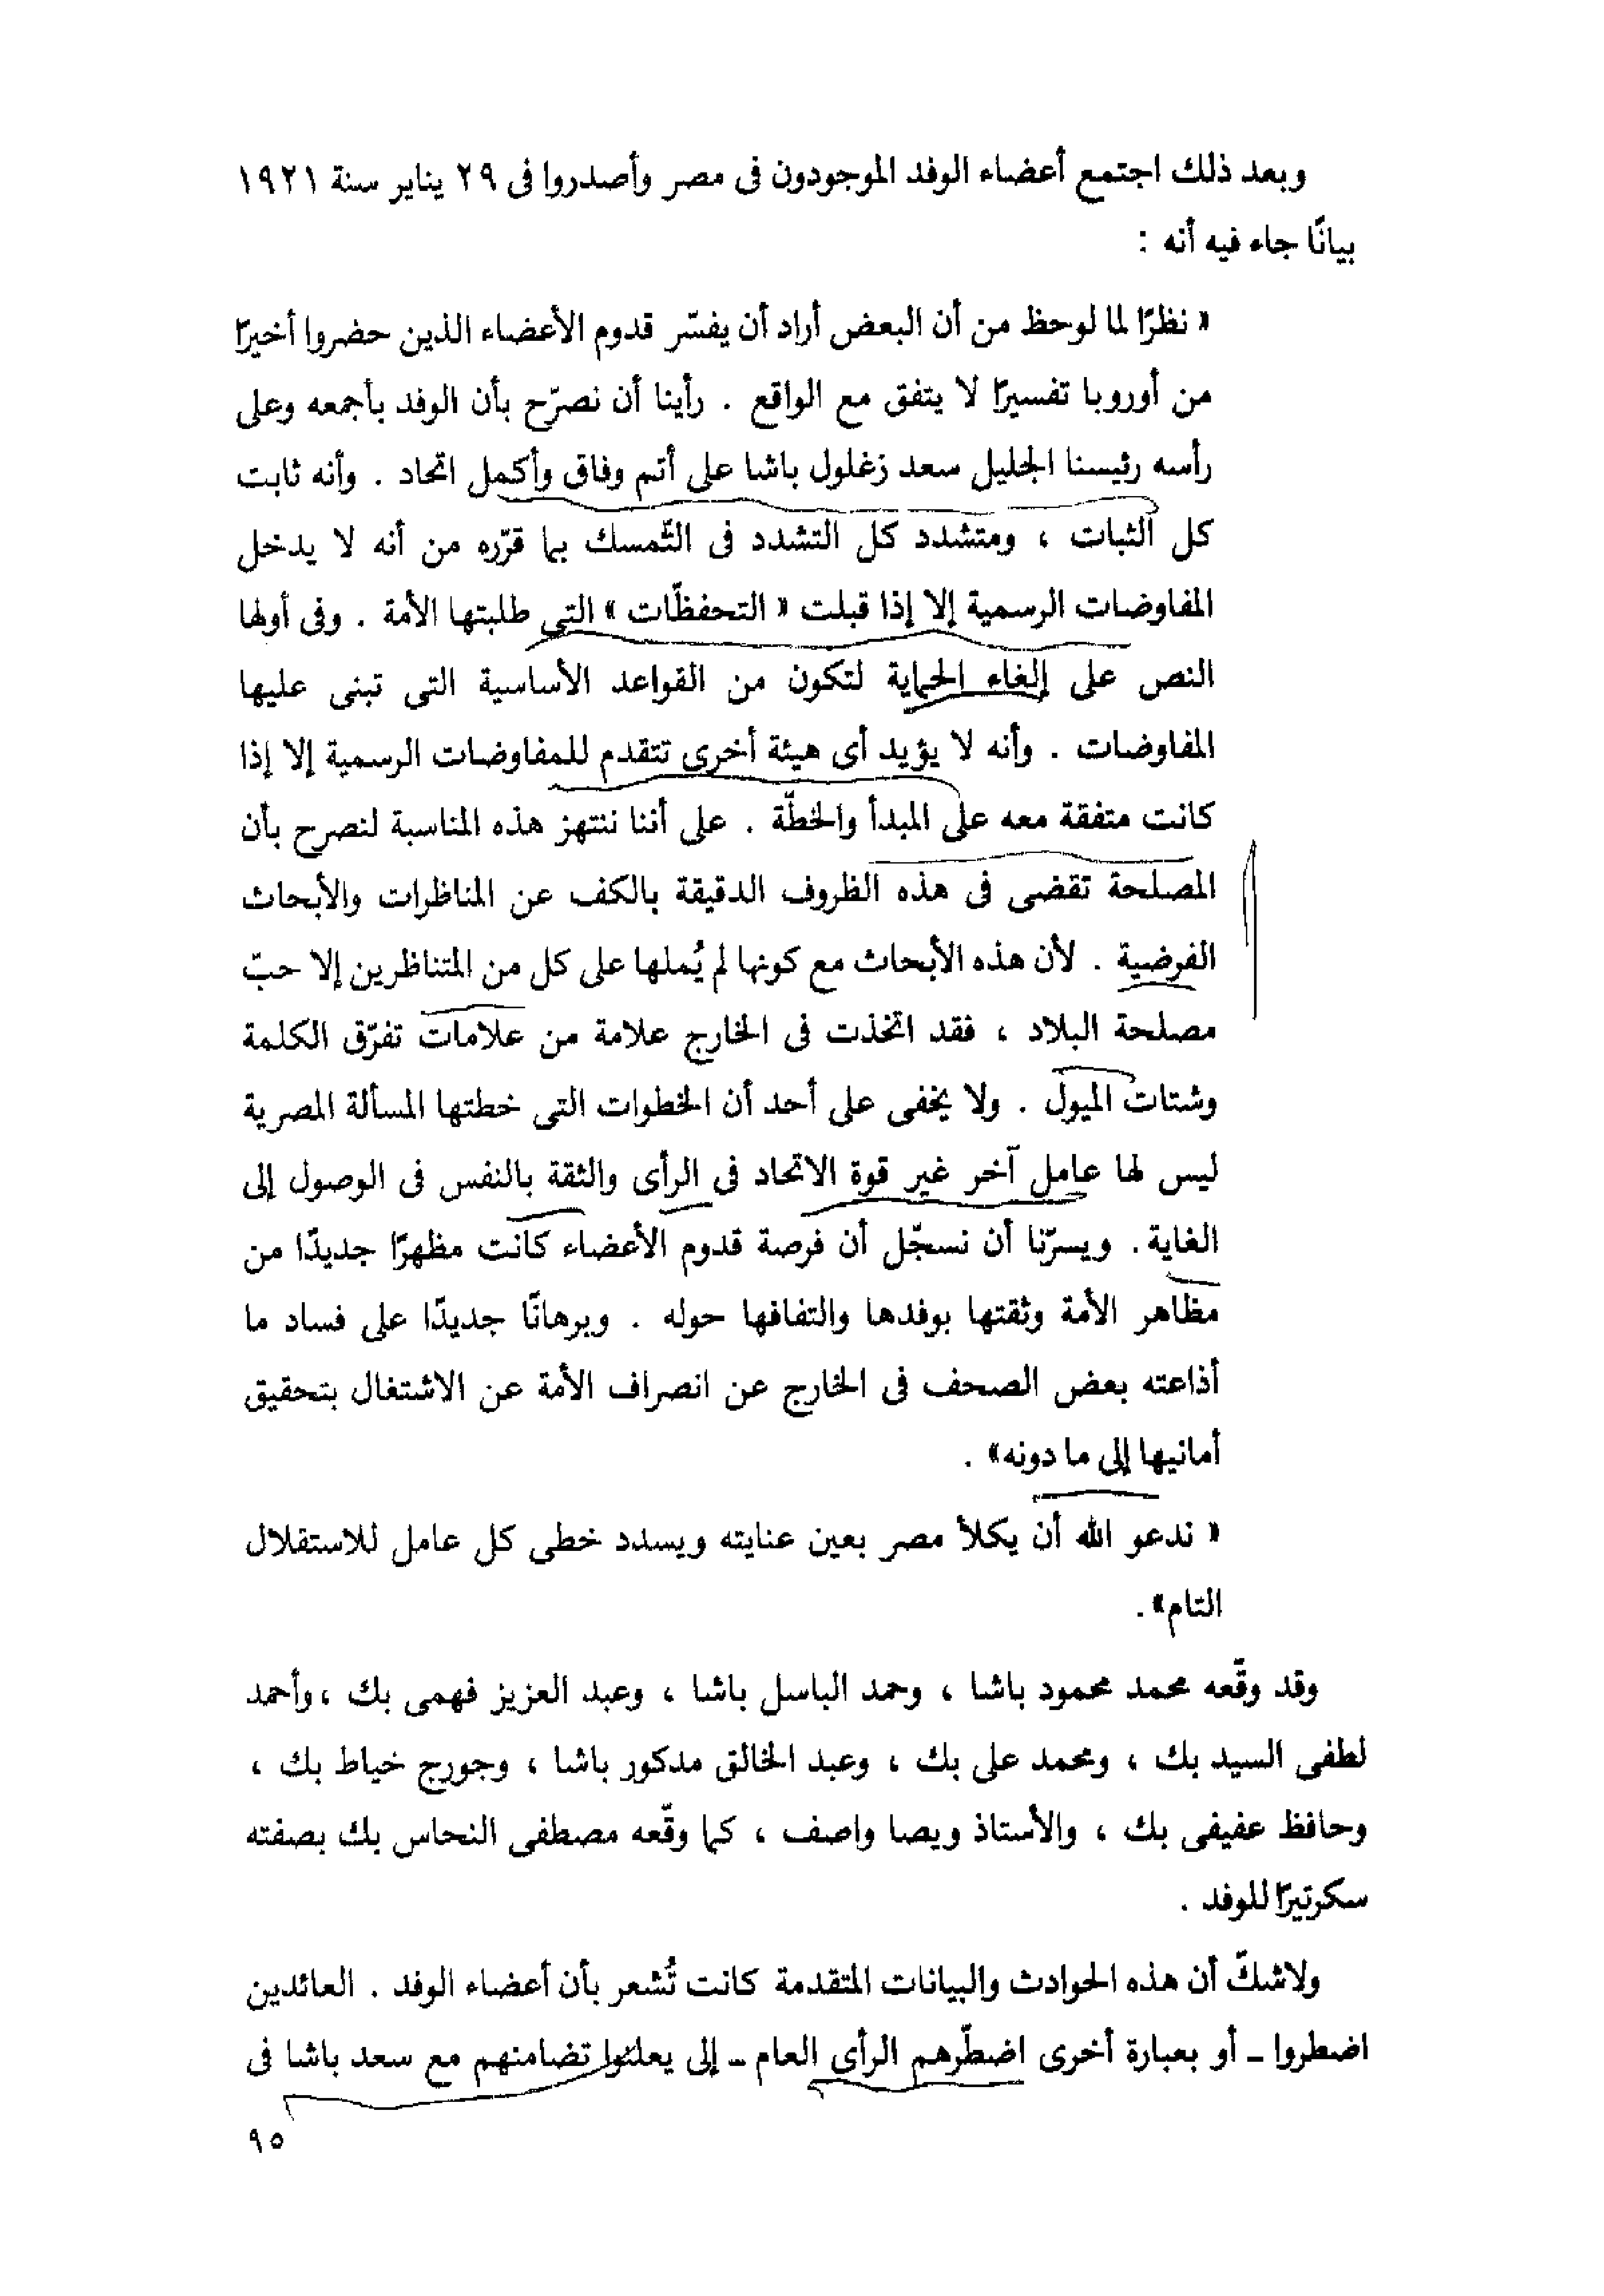 وبعد ذلك اجتمع أعضاء الوفد الموجودون فى مصر وأصدروا فى ٢٩ يناير سنة ١٩٢١
بيانًا جاء فيه أنه :
« نظرًا لما لوحظ من أن البعض أراد أن يفسّر قدوم الأعضاء الذين حضروا أخيرًا
من أوروبا تفسيرًا لا يتفق مع الواقع . رأينا أن نصرّح بأن الوفد بأجمعه وعلى
رأسه رئيسنا الجليل سعد زغلول باشا على أتم وفاق وأكمل اتحاد . وأنه ثابت
كل الثبات ، ومتشدد كل التشدد فى التّمسك بما قرّره من أنه لا يدخل
المفاوضات الرسمية إلا إذا قبلت « التحفظّات » التى طلبتها الأمة . وفى أولها
النص على إلغاء الحماية لتكون من القواعد الأساسية التى تبنى عليها
المفاوضات . وأنه لا يؤيد أى هيئة أخرى تتقدم للمفاوضات الرسمية إلا إذا
كانت متفقة معه على المبدأ والخطّة . على أننا ننتهز هذه المناسبة لنصرح بأن
المصلحة تقضى فى هذه الظروف الدقيقة بالكف عن المناظرات والأبحاث
الفرضية . لأن هذه الأبحاث مع كونها لم يُملها على كل من المتناظرين إلا حبّ
مصلحة البلاد ، فقد اتخذت فى الخارج علامة من علامات تفرّق الكلمة
وشتات الميول . ولا يخفى على أحد أن الخطوات التى خطتها المسألة المصرية
ليس لها عامل آخر غير قوة الاتحاد فى الرأى والثقة بالنفس فى الوصول إلى
الغاية . ويسرّنا أن نسجّل أن فرصة قدوم الأعضاء كانت مظهرًا جديدًا من
مظاهر الأمة وثقتها بوفدها والتفافها حوله . وبرهانًا جديدًا على فساد ما
أذاعته بعض الصحف فى الخارج عن انصراف الأمة عن الاشتغال بتحقيق
أمانيها إلى ما دونه» .
« ندعو الله أن يكلأ مصر بعين عنايته ويسدد خطى كل عامل للاستقلال
التام» .
وقد وقّعه محمد محمود باشا ، وحمد الباسل باشا ، وعبد العزيز فهمى بك ، وأحمد
لطفى السيد بك ، ومحمد على بك ، وعبد الخالق مدكور باشا ، وجورج خياط بك ،
وحافظ عفيفى بك ، والأستاذ ويصا واصف ، كما وقّعه مصطفى النحاس بك بصفته
سكرتيرًا للوفد .
ولاشكّ أن هذه الحوادث والبيانات المتقدمة كانت تُشعر بأن أعضاء الوفد . العائدين
اضطروا ـ أو بعبارة أخرى اضطّرهم الرأى العام ـ إلى يعلنوا تضامنهم مع سعد باشا فى
٩٥